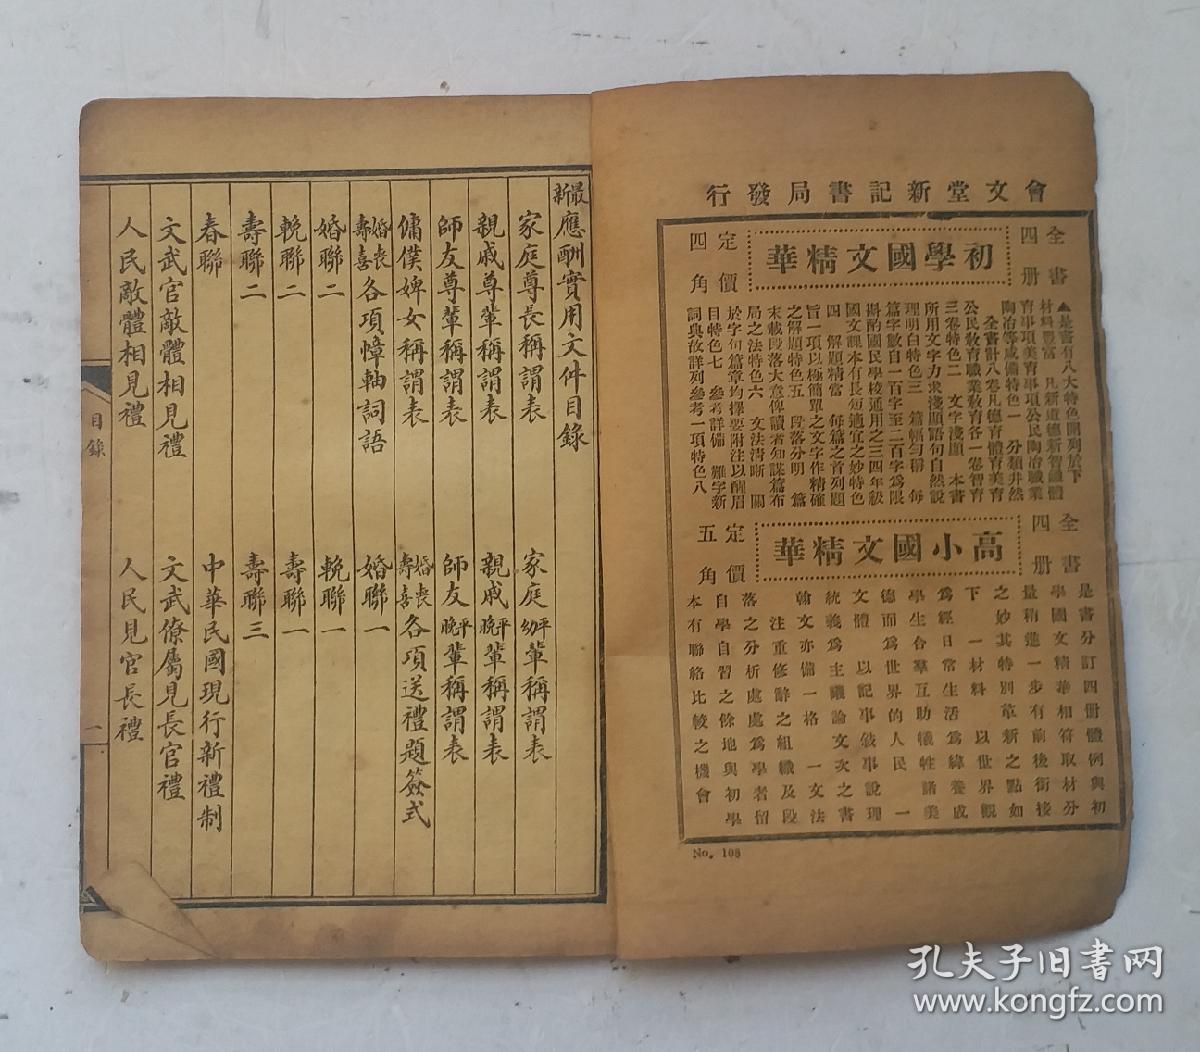 會文堂新記書局發行
初學國文精華
全書四册
定價四角
▲是書有八大特色開列於下
材料豐富　凡新道德新智識體
育事項美育事項公民陶冶職業
陶冶等咸備特色一　分類井然
全書計八卷凡德育體育美育
公民教育職業教育各一卷智育
三卷特色二　文字淺顯　本書
所用文字力求淺顯語句自然說
理明白特色三　篇幅勻稱　每
篇字數自一百字至二百字爲限
斟酌國民學校通用之三四年級
國文課本有長短適宜之妙特色
四　解題精當　每篇之首列題
旨一項以極簡單之文字作精確
之解題特色五　段落分明　篇
末載段落大意俾讀者知謀篇布
局之法特色六　文法清晰　關
於字句篇章均擇要附注以醒眉
目特色七　參考詳備　難字新
詞與故詳列參考一項特色八
高小國文精華
全書四册
定價五角
是書分訂四册體例與初
學國文精華相符取材分
量稍進一步有前後銜接
之妙其特別革新之點如
下　一材料　以世界觀
爲經日常生活爲緯養成
學生合羣互助犧牲諸美
德而爲世界的人民　一
文體　以記事敘事說理
統義爲主議論文次之書
翰文亦備一格　一文法
注重修辭之組織及段
落之分析處處爲學者留
自學自習之餘地與初學
本有聯絡比較之機會
No. 108
最新應酬實用文件目錄
家庭尊長稱謂表　家庭平幼輩稱謂表
親戚尊輩稱謂表　親戚平晚輩稱謂表
師友尊輩稱謂表　師友平晚輩稱謂表
傭僕婢女稱謂表
婚喪壽喜各項幛軸詞語　婚喪壽喜各項送禮題簽式
婚聯二　婚聯一
輓聯二　輓聯一
壽聯二　壽聯一
春聯　壽聯三
中華民國現行新禮制
文武官敵體相見禮　文武僚屬見長官禮
人民敵體相見禮　人民見官長禮
目錄
一
孔夫子旧書网
www.kongfz.com